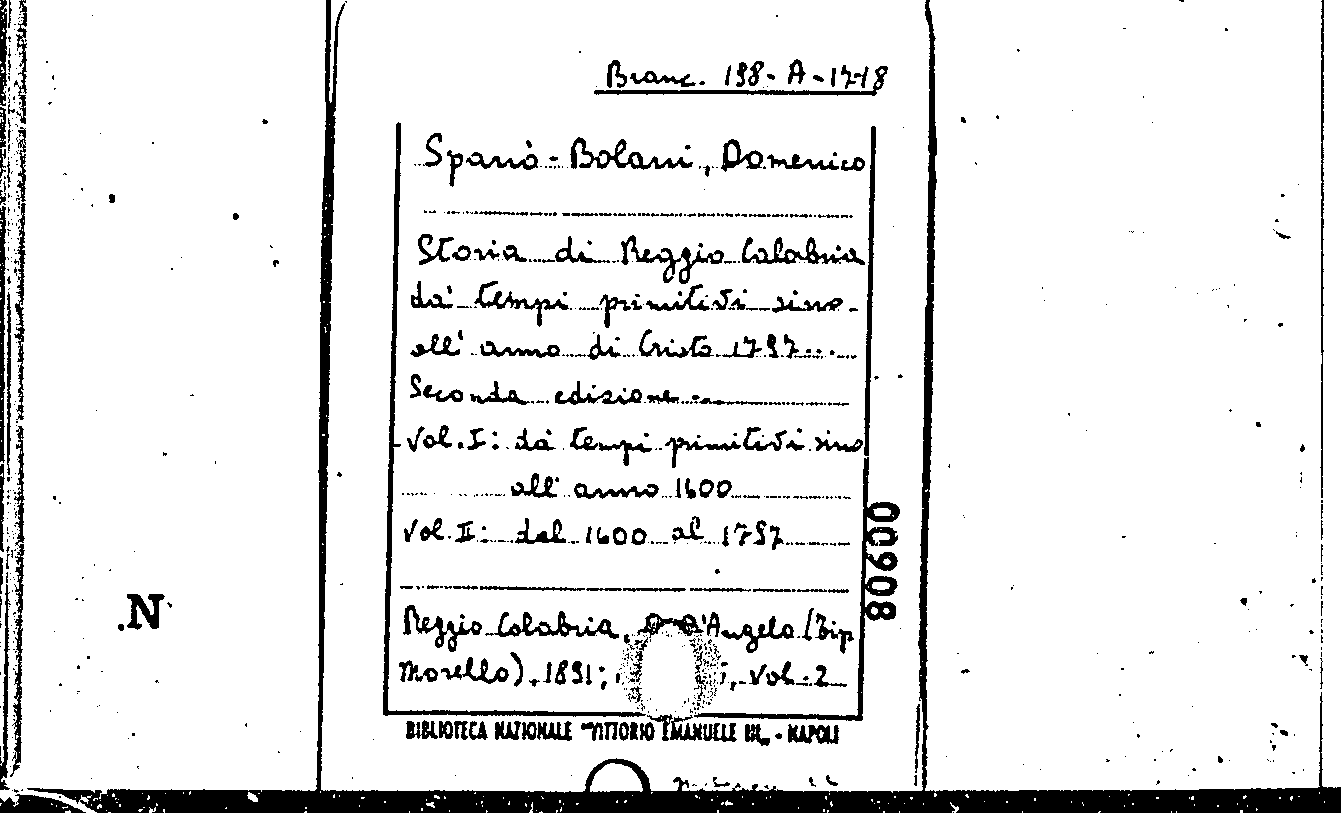 Branc. 138-A-17-18
Spanò-Bolani, Domenico
Storia di Reggio Calabria
da' tempi primitivi sino
all' anno di Cristo 1797...
Seconda edizione...
Vol. I: da' tempi primitivi sino
all' anno 1600
Vol. II: dal 1600 al 1797
00908
.N
Reggio Calabria, D'Angelo (Tip
Morello), 1891; vol. 2
BIBLIOTECA NAZIONALE "VITTORIO EMANUELE III" - NAPOLI